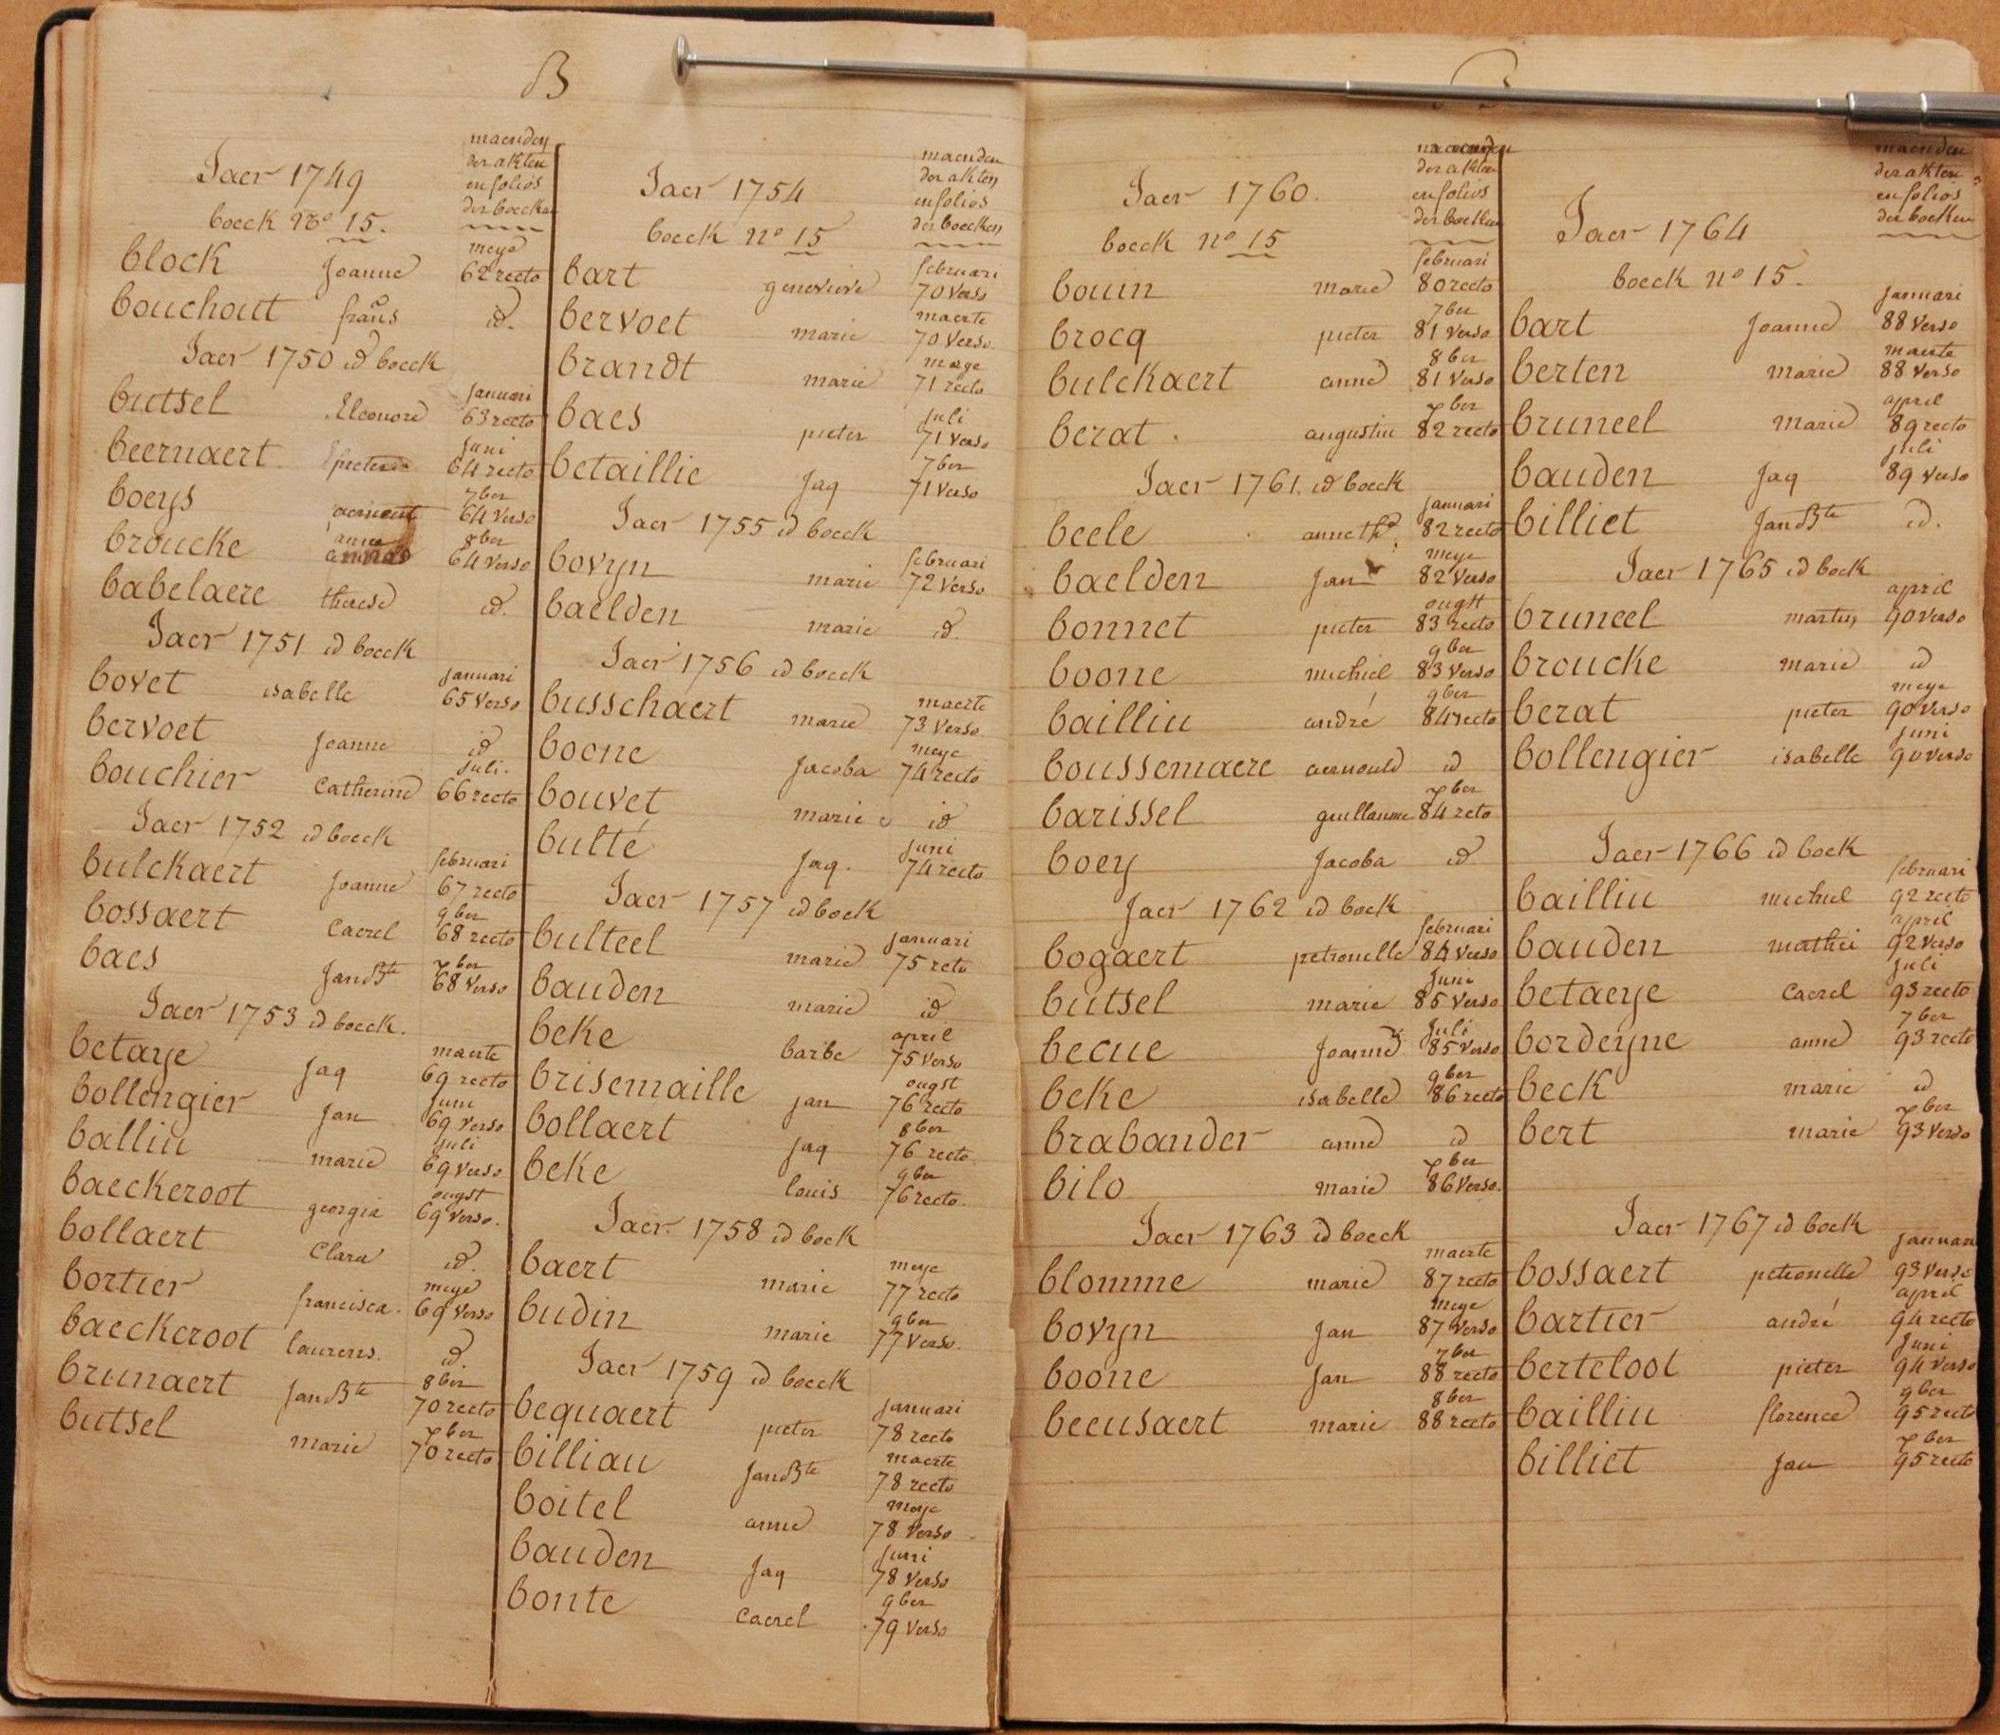 B
Jaer 1749
maenden
der akten
en folios
der boecken
boeck No 15.
meye
block Joanne 62 recto
bouchout frans id.
Jaer 1750 id boeck
Januari
butsel Eleonore 63 recto
Juni
beernaert pieter 64 recto
7ber
boeys 64 verso
8ber
broucke anna 64 verso
babelaere therese id.
Jaer 1751 id boeck
Januari
bovet isabelle 65 verso
bervoet Joanne id
Juli.
bouchier Catherine 66 recto
Jaer 1752 id boeck
februari
bulckaert Joanne 67 recto
9ber
bossaert Caerel 68 recto
xber
baes JanBte 68 verso
Jaer 1753 id boeck.
maerte
betaye Jaq 69 recto
Juni
bollengier Jan 69 verso
Juli
bailliu marie 69 verso
ougst
baeckeroot georgia 69 verso.
bollaert Clara id.
meye
bortier francisca. 69 verso
baeckeroot laurens. id.
8ber
brunaert JanBte 70 recto
xber
butsel marie 70 recto
Jaer 1754
maenden
der akten
en folios
der boecken
boeck no 15
februari
bart genevieve 70 verso
maerte
bervoet marie 70 verso.
meye
brandt marie 71 recto
Juli
baes pieter 71 verso
7ber
betaillie Jaq 71 verso
Jaer 1755 id boeck
februari
bovyn marie 72 verso
baelden marie id.
Jaer 1756 id boeck
maerte
busschaert marie 73 verso
meye
boone Jacoba 74 recto
bouvet marie id
Juni
bulté Jaq. 74 recto
Jaer 1757 id boek
Januari
bulteel marie 75 recto
bauden marie id
april
beke barbe 75 verso
ougst
brisemaille jan 76 recto
8ber
bollaert Jaq 76 recto
9ber
beke louis 76 recto.
Jaer. 1758 id boek
meye
baert marie 77 recto
9ber
budin marie 77 verso.
Jaer 1759 id boeck
Januari
bequaert pieter 78 recto
maerte
billiau JanBte 78 recto
meye
boitel anne 78 verso
Juni
bauden Jaq 78 verso
9ber
bonte Caerel 79 verso
Jaer 1760.
maenden
der akten
en folios
der boeken
boeck no 15
februari
bouin marie 80 recto
7ber
brocq pieter 81 verso
8ber
bulckaert anne 81 verso
xber
berat. augustin 82 recto
Jaer 1761. id boeck
Januari
beele anneth. 82 recto
meye
baelden Jan 82 verso
ougst
bonnet pieter 83 recto
9ber
boone michiel 83 verso
9ber
bailliu andré 84 recto
boussemaere aernould id
xber
barissel guillaume 84 recto
boey Jacoba id
Jaer 1762 id boek
februari
bogaert petronelle 84 verso
Juni
butsel marie 85 verso
Juli
becue Joanne 85 verso
9ber
beke isabelle 86 recto
brabander anne id
xber
bilo marie 86 verso.
Jaer 1763 id boeck
maerte
blomme marie 87 recto
meye
bovyn Jan 87 verso
7ber
boone Jan 88 recto
8ber
beeusaert marie 88 recto
maenden
der akten
en folios
der boeken
Jaer 1764
boeck no 15.
Januari
bart Joanne 88 verso
maerte
berten marie 88 verso
april
bruneel marie 89 recto
Juli
bauden Jaq 89 verso
billiet JanBte id.
Jaer 1765 id boek
april
bruneel martin 90 verso
broucke marie id
meye
berat pieter 90 verso
Juni
bollengier isabelle 90 verso
Jaer 1766 id boek
februari
bailliu michiel 92 recto
april
bauden mathei 92 verso
Juli
betaeye Caerel 93 recto
7ber
bordeyne anne 93 recto
beck marie id
xber
bert marie 93 verso
Jaer 1767 id boek
Januari
bossaert petronelle 93 verso
april
bartier andré 94 recto
Juni
berteloot pieter 94 verso
9ber
bailliu florence 95 recto
xber
billiet Jan 95 recto